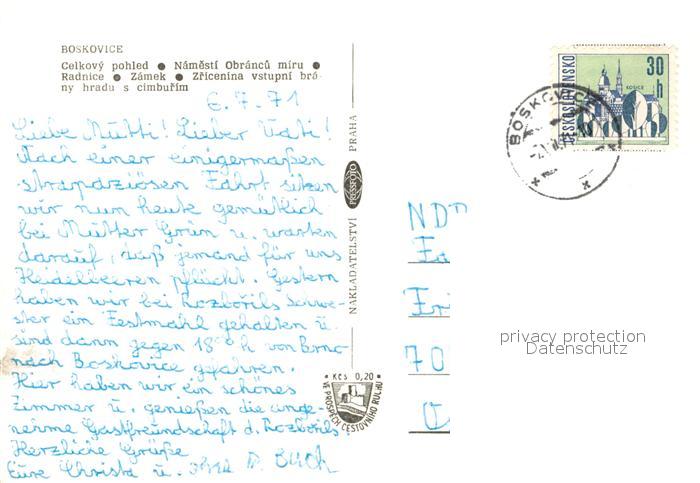 BOSKOVICE
Celkový pohled ● Náměstí Obránců míru ●
Radnice ● Zámek ● Zřícenina vstupní brá-
ny hradu s cimbuřím
6.7.71
Liebe Mutti! Lieber Vati!
Nach einer einigermaßen
strapaziösen Fahrt sitzen
wir nun heute gemütlich
bei Mutter Grün u. warten
darauf, daß jemand für uns
Heidelbeeren pflückt. Gestern
haben wir bei Rozbořils Schwe-
ster ein Festmahl gehalten u.
sind dann gegen 18ºº h von Brno
nach Boskovice gefahren.
Hier haben wir ein schönes
Zimmer u. genießen die ange-
nehme Gastfreundschaft d. Rozbořils!
Herzliche Grüße
Eure Christa u.
NAKLADATELSTVÍ PRESSFOTO PRAHA
Kčs 0,20
VE PROSPĚCH CESTOVNÍHO RUCHU
ČESKOSLOVENSKO
30 h
KOŠICE
BOSKOVICE
ND
70
privacy protection
Datenschutz